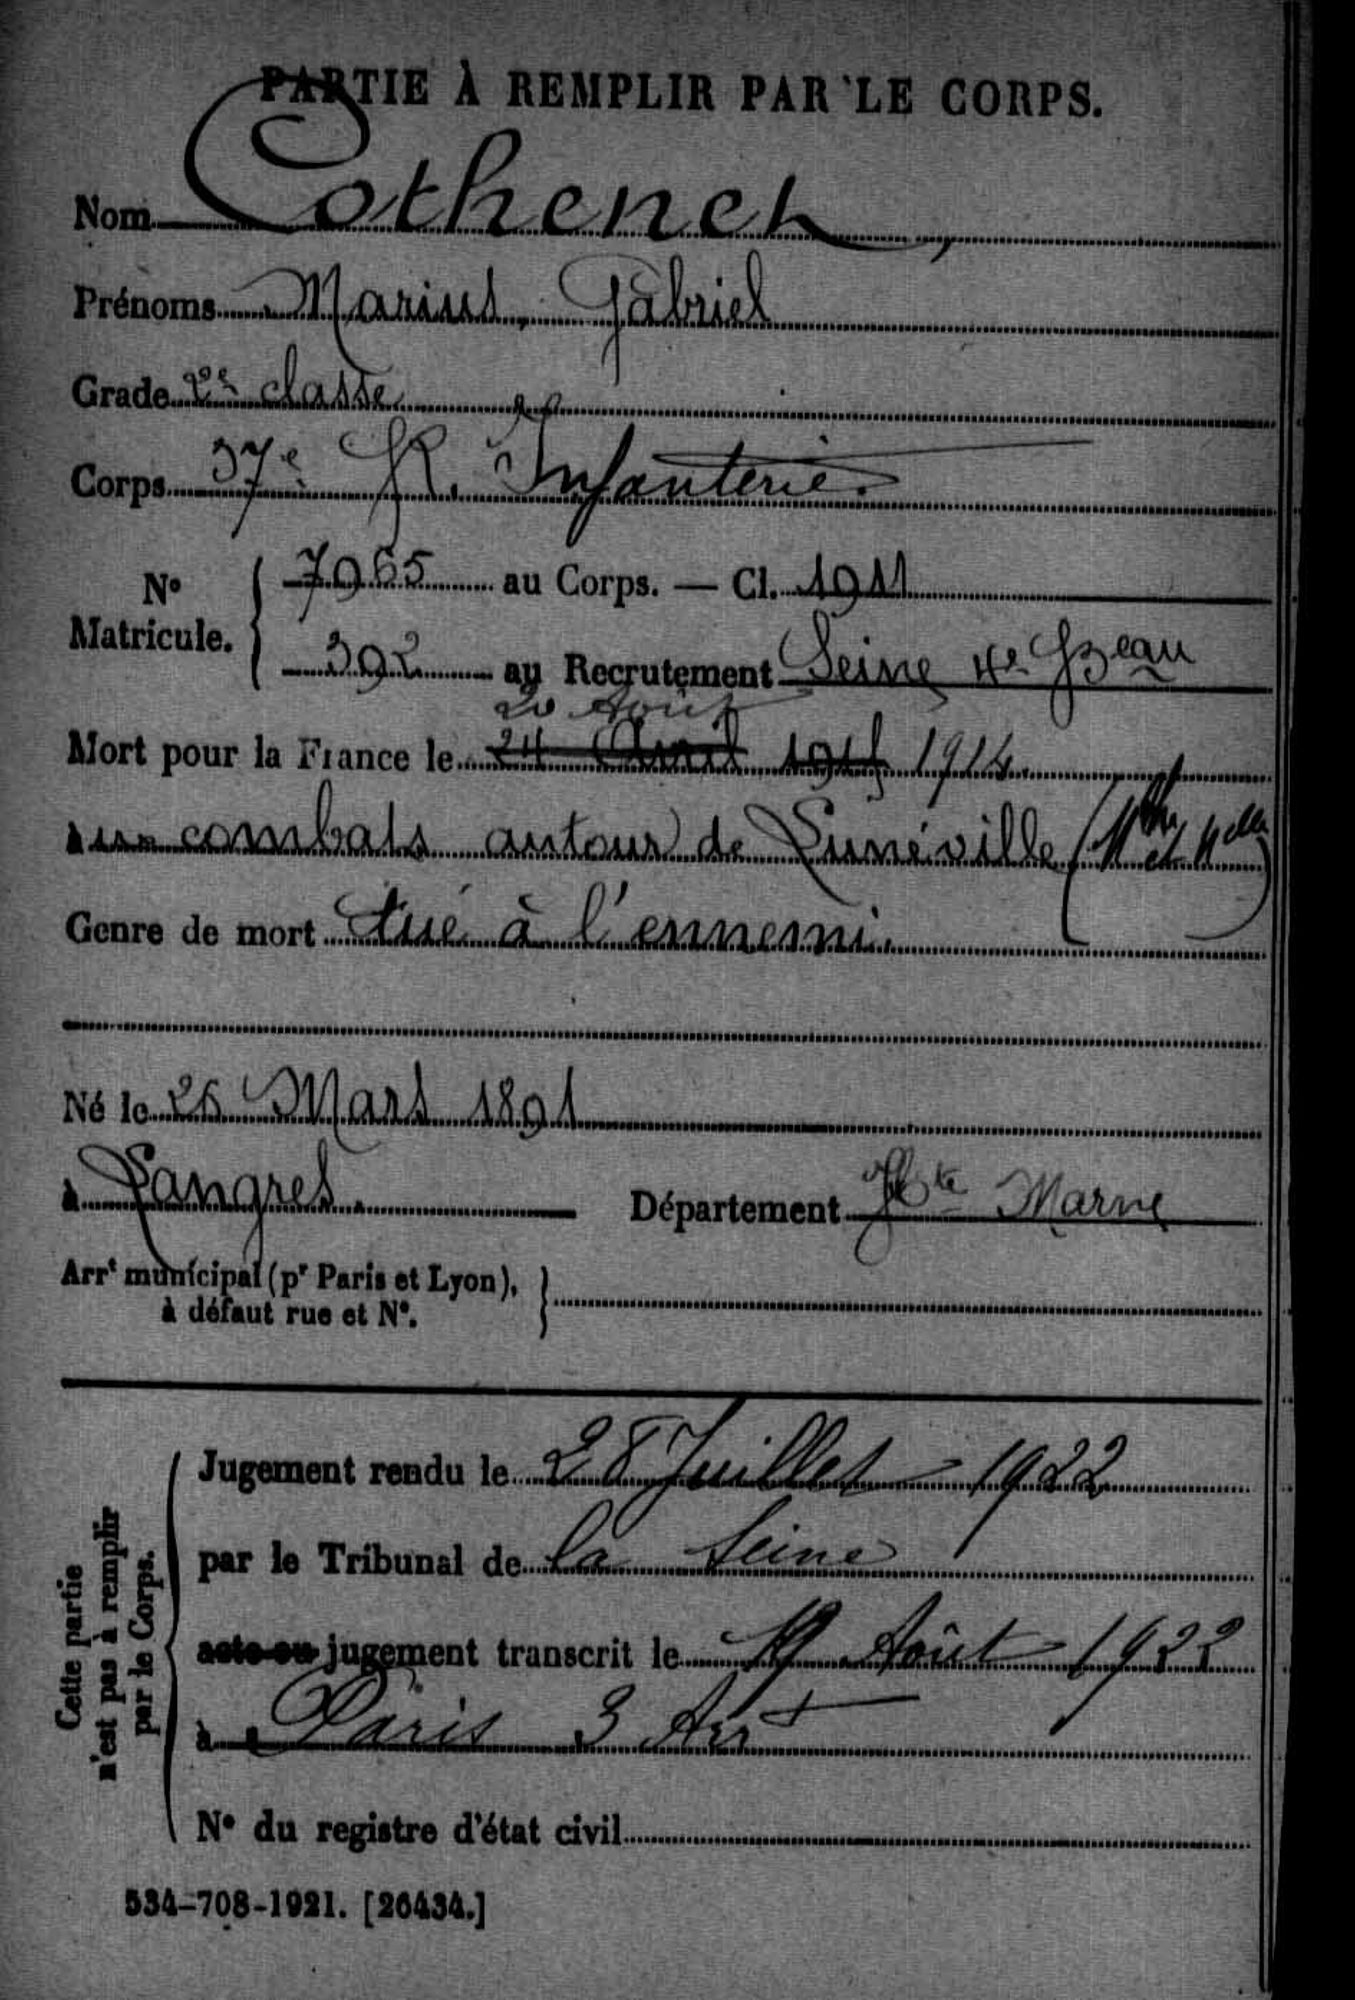 PARTIE À REMPLIR PAR LE CORPS.
Nom Cothenet,
Prénoms Marius, Gabriel
Grade 2e classe
Corps 37e R. Infanterie.
No Matricule. { 7965 au Corps. — Cl. 1911
392 au Recrutement Seine 4e Beau
20 Août
Mort pour la France le 24 Avril 1915 1914
aux combats autour de Lunéville (Mthe et Melle)
Genre de mort tué à l'ennemi.
Né le 26 Mars 1891
à Langres. Département Hte Marne
Arrt municipal (pr Paris et Lyon),
à défaut rue et No. }
Cette partie
n'est pas à remplir
par le Corps.
Jugement rendu le 28 Juillet 1922
par le Tribunal de la Seine
acte ou jugement transcrit le 19 Août 1922
à Paris 3 Arrt
No du registre d'état civil
534-708-1921. [26434.]